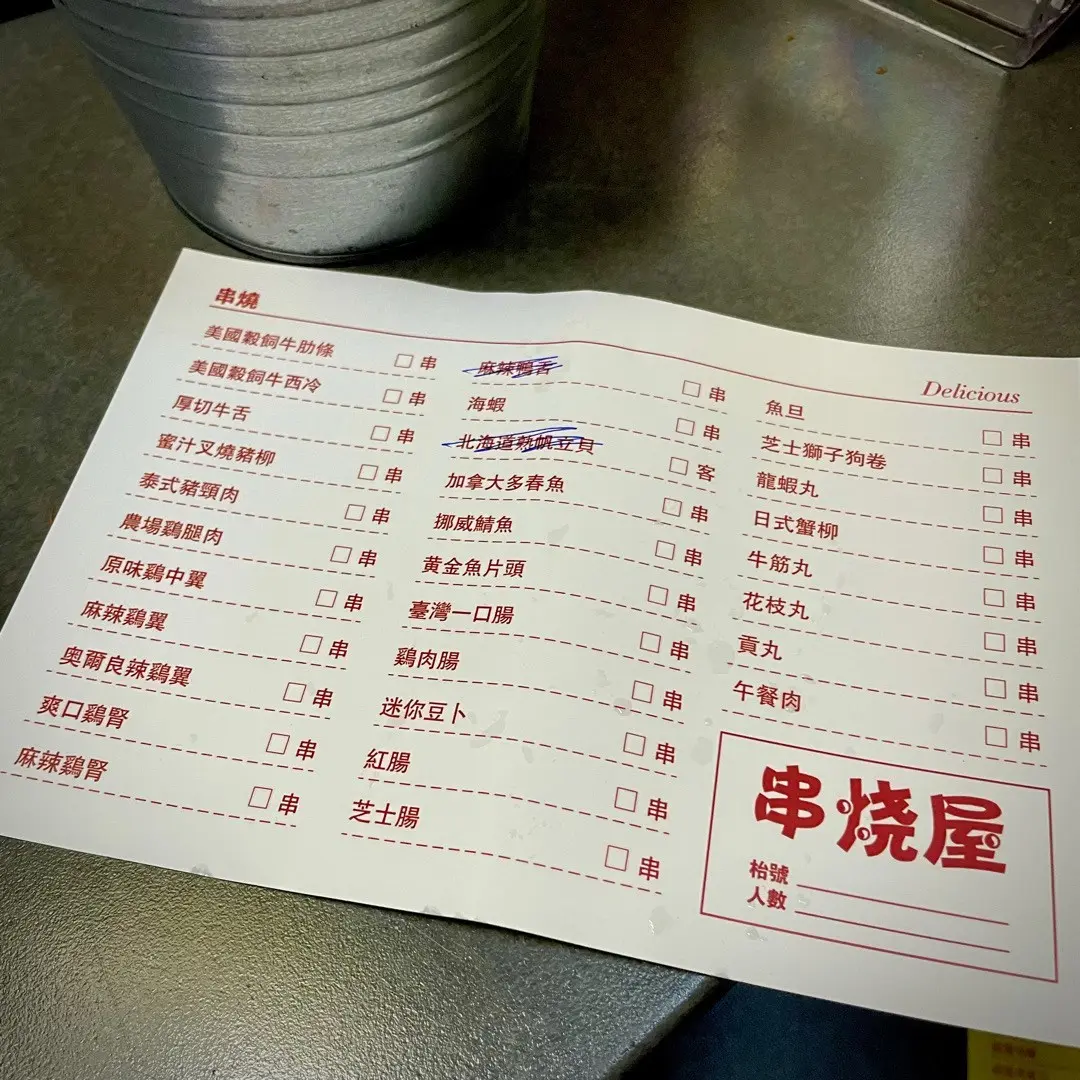 串燒
Delicious
美國穀飼牛肋條 串
美國穀飼牛西冷 串
厚切牛舌 串
蜜汁叉燒豬柳 串
泰式豬頸肉 串
農場鷄腿肉 串
原味鷄中翼 串
麻辣鷄翼 串
奧爾良辣鷄翼 串
爽口鷄腎 串
麻辣鷄腎 串
麻辣鴨舌 串
海蝦 串
北海道熟帆立貝 客
加拿大多春魚 串
挪威鯖魚 串
黄金魚片頭 串
臺灣一口腸 串
鷄肉腸 串
迷你豆卜 串
紅腸 串
芝士腸 串
魚旦 串
芝士獅子狗卷 串
龍蝦丸 串
日式蟹柳 串
牛筋丸 串
花枝丸 串
貢丸 串
午餐肉 串
串烧屋
枱號
人數